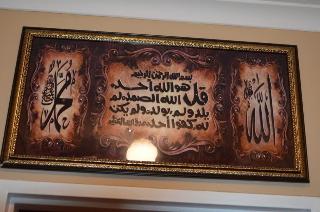 الله
بسم الله الرحمن الرحيم
قل هو الله احد
الله الصمد لم
يلد ولم يولد ولم يكن
له كفوا احد
محمد